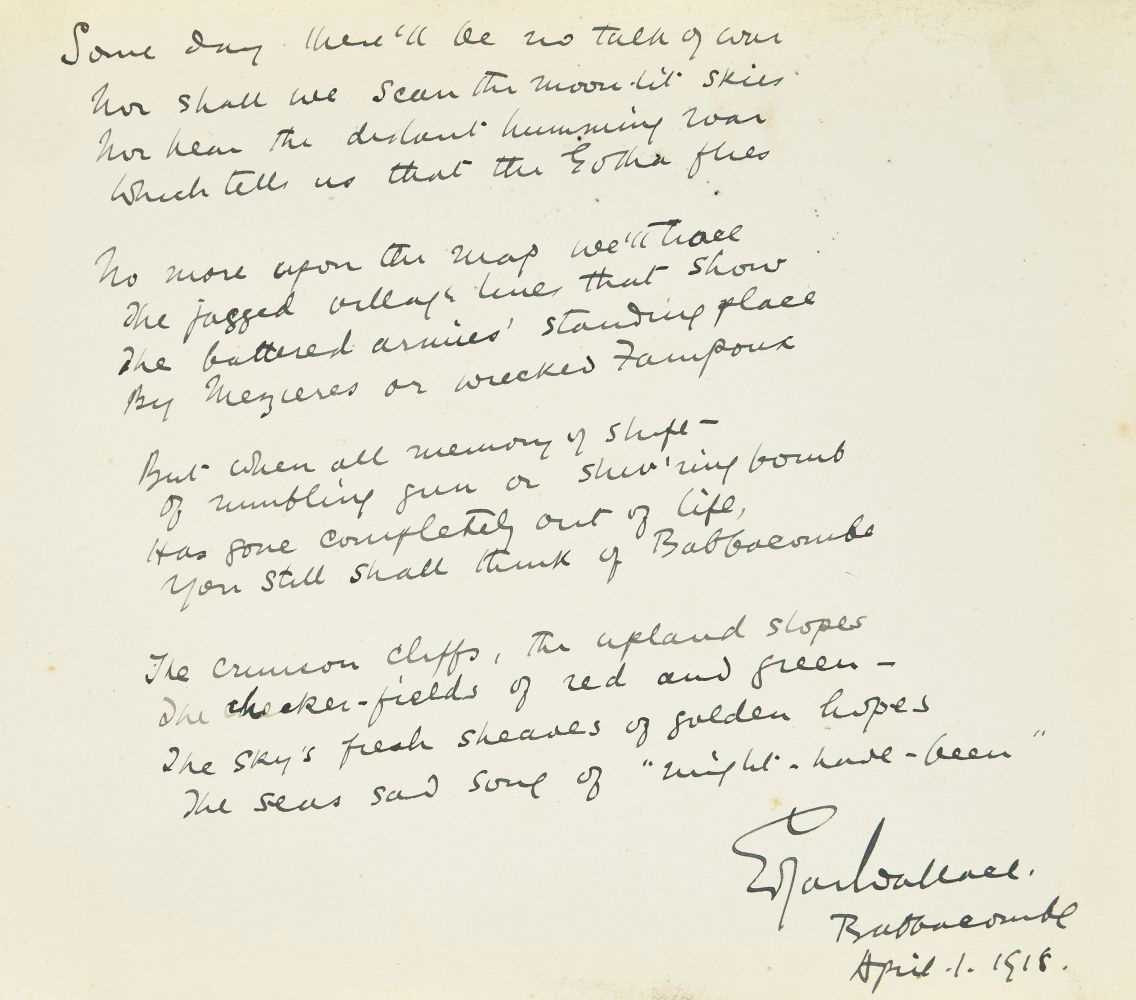 Some day there'll be no talk of war
Nor shall we scan the moon-lit skies
Nor hear the distant humming roar
Which tells us that the Gotha flies
No more upon the map we'll trace
The jagged village lines that show
The battered armies' standing place
By Mezieres or wrecked Fampoux
But when all memory of strife -
Of rumbling gun or shiv'ring bomb
Has gone completely out of life,
You still shall think of Babbacombe
The crimson cliffs, the upland slopes
The checker-fields of red and green -
The sky's fresh sheaves of golden hopes
The seas sad song of "might-have-been"
Edgar Wallace.
Babbacombe
April.1.1918.